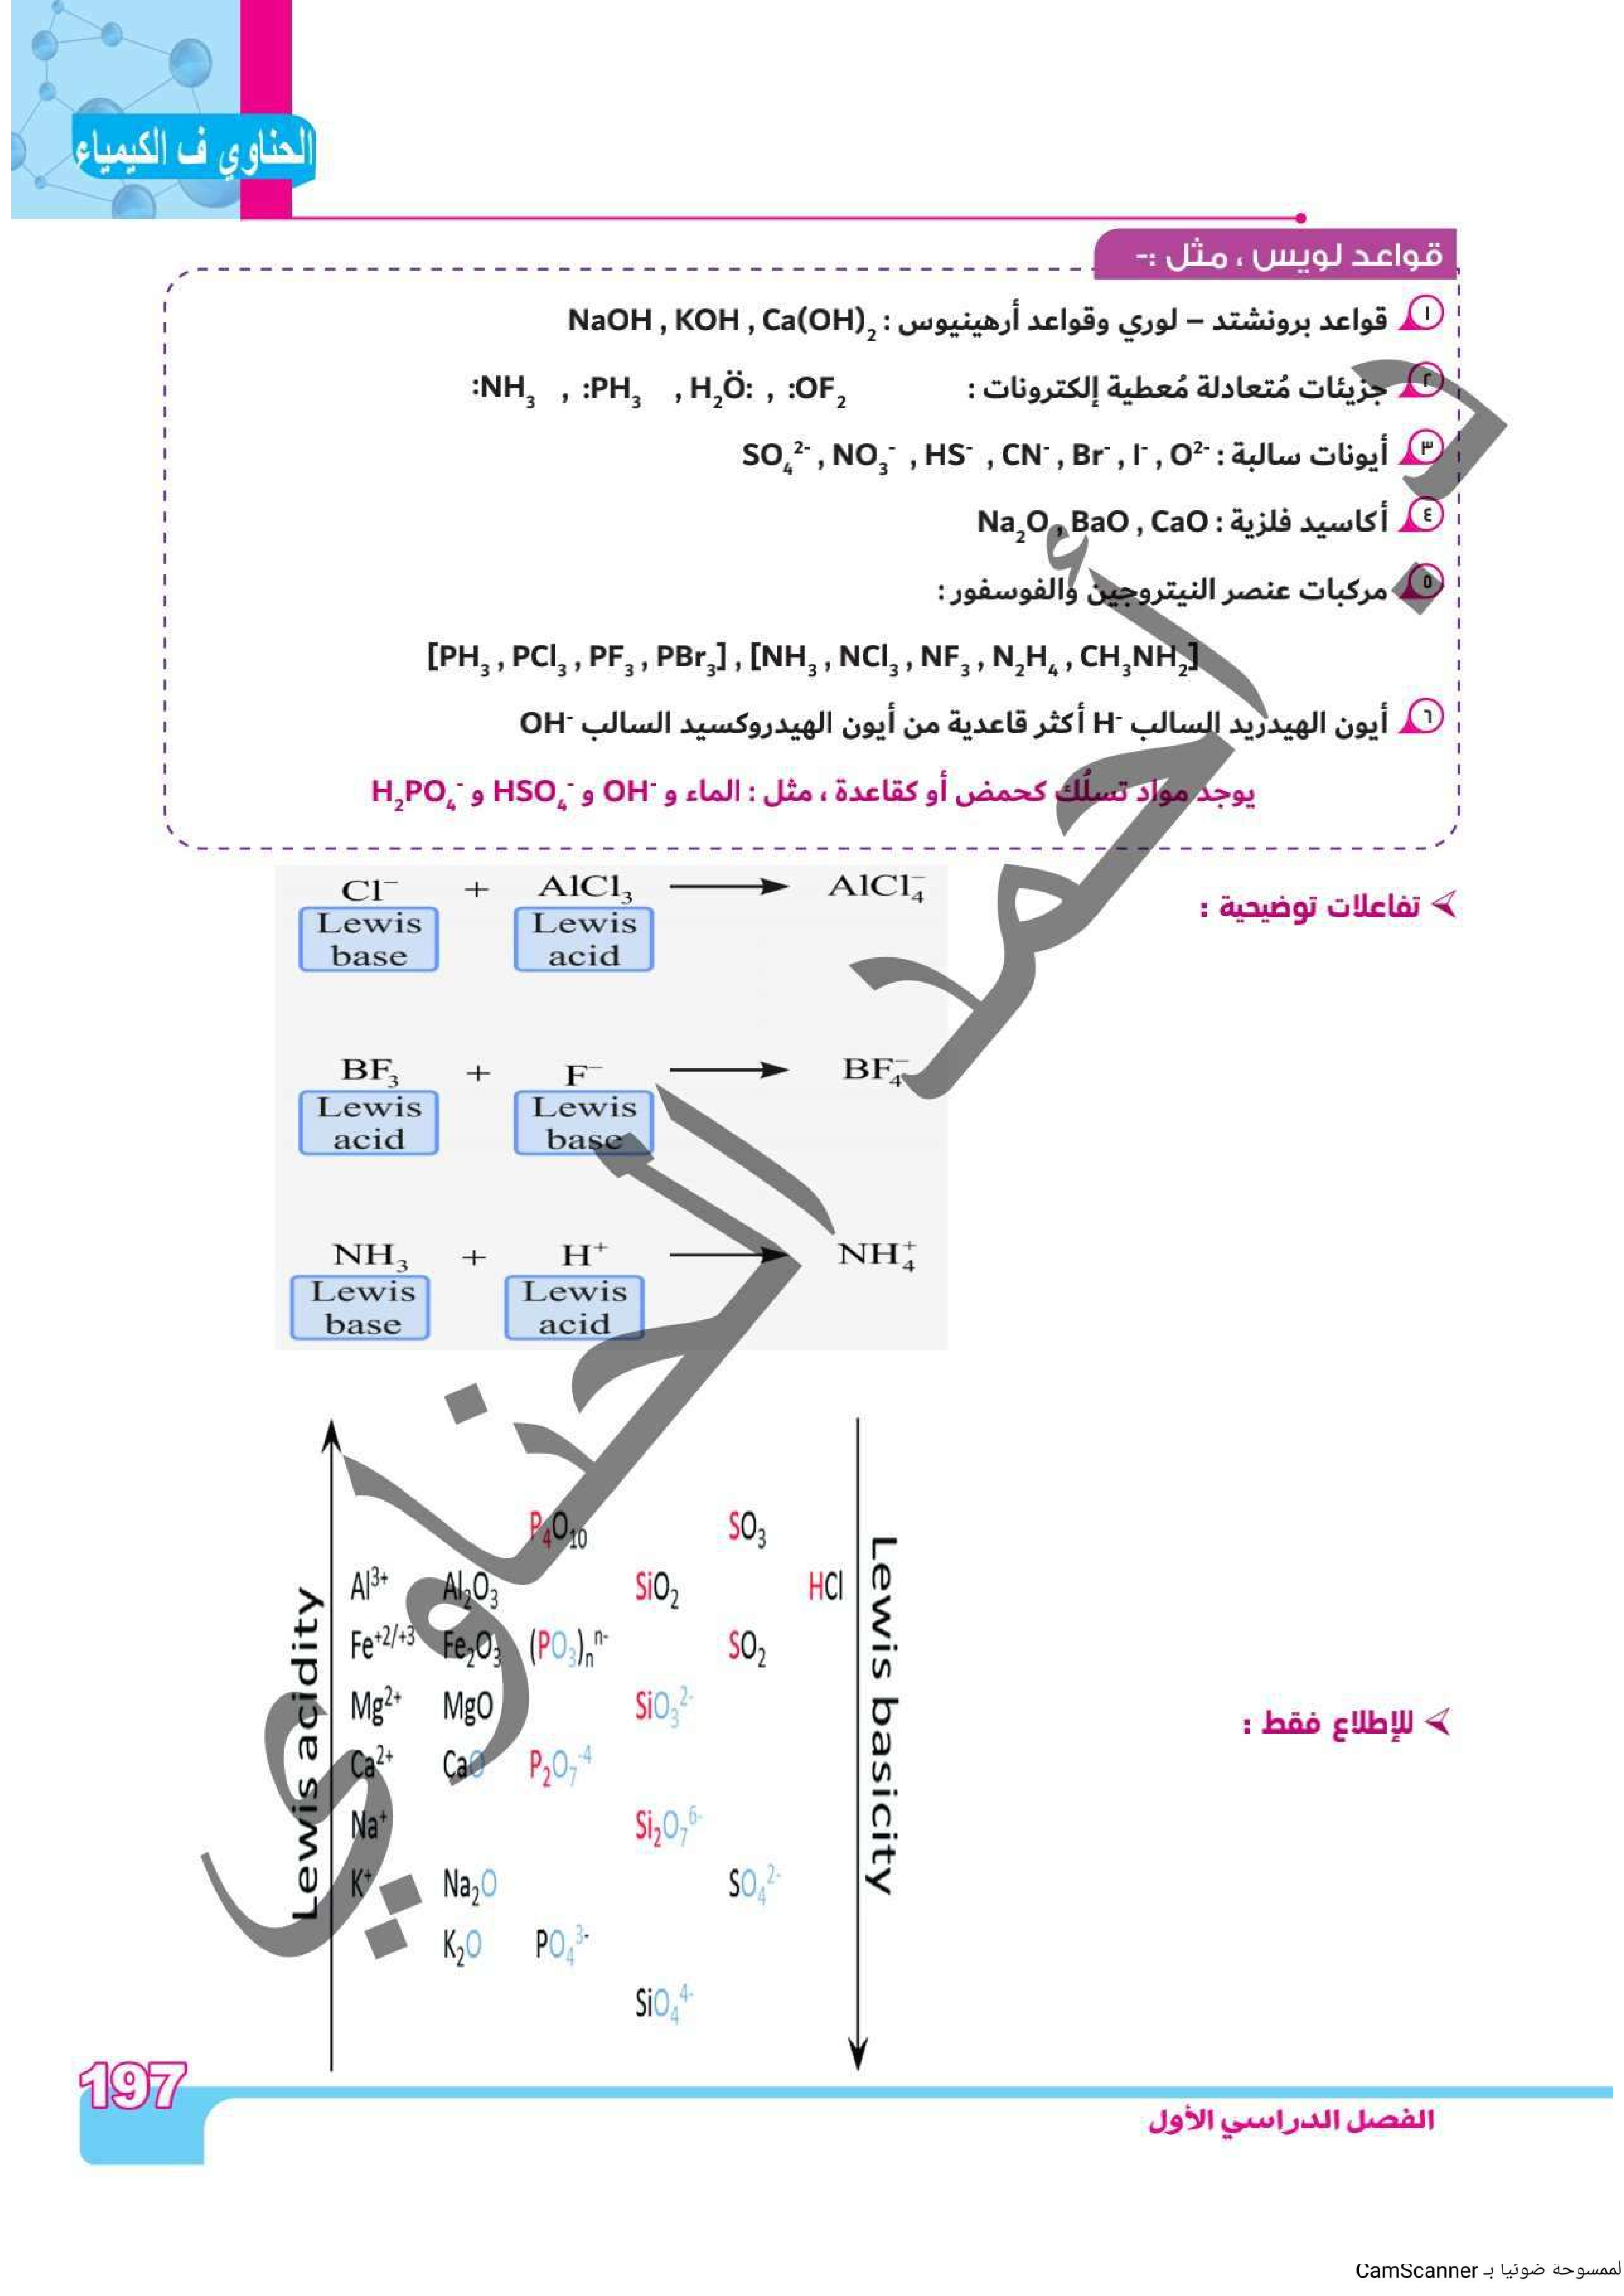 الحناوي ف الكيمياء
قواعد لويس ، مثل :-
١ قواعد برونشتد – لوري وقواعد أرهينيوس : NaOH , KOH , Ca(OH)₂
٢ جزيئات مُتعادلة مُعطية إلكترونات : :NH₃ , :PH₃ , H₂Ö: , :OF₂
٣ أيونات سالبة : SO₄²⁻ , NO₃⁻ , HS⁻ , CN⁻ , Br⁻ , I⁻ , O²⁻
٤ أكاسيد فلزية : Na₂O , BaO , CaO
٥ مركبات عنصر النيتروجين والفوسفور :
[PH₃ , PCl₃ , PF₃ , PBr₃] , [NH₃ , NCl₃ , NF₃ , N₂H₄ , CH₃NH₂]
٦ أيون الهيدريد السالب H⁻ أكثر قاعدية من أيون الهيدروكسيد السالب OH⁻
يوجد مواد تسلُك كحمض أو كقاعدة ، مثل : الماء و OH⁻ و HSO₄⁻ و H₂PO₄⁻
تفاعلات توضيحية :
Cl⁻ + AlCl₃ → AlCl₄⁻
Lewis base Lewis acid
BF₃ + F⁻ → BF₄⁻
Lewis acid Lewis base
NH₃ + H⁺ → NH₄⁺
Lewis base Lewis acid
د. أحمد الحناوي
للإطلاع فقط :
Lewis acidity
Lewis basicity
P₄O₁₀ SO₃
Al³⁺ Al₂O₃ SiO₂ HCl
Fe⁺²/⁺³ Fe₂O₃ (PO₃)ₙⁿ⁻ SO₂
Mg²⁺ MgO SiO₃²⁻
Ca²⁺ CaO P₂O₇⁻⁴
Na⁺ Si₂O₇⁶⁻
K⁺ Na₂O SO₄²⁻
K₂O PO₄³⁻
SiO₄⁴⁻
197
الفصل الدراسي الأول
الممسوحة ضوئيا بـ CamScanner